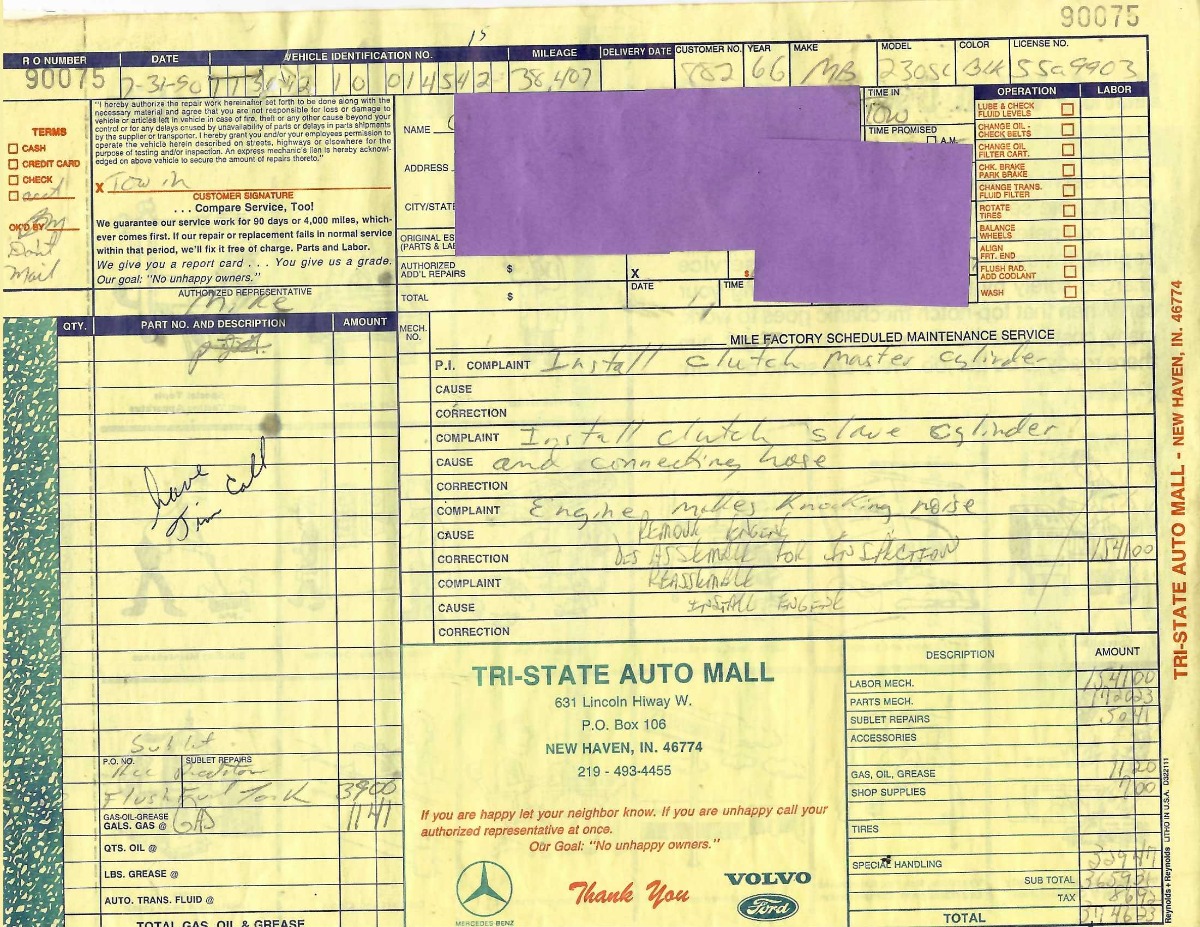 90075
R O NUMBER DATE VEHICLE IDENTIFICATION NO. MILEAGE DELIVERY DATE CUSTOMER NO. YEAR MAKE MODEL COLOR LICENSE NO.
90075 7-31-90 10 014542 38,407 882 66 MB 230SL BLK 55a9903
"I hereby authorize the repair work hereinafter set forth to be done along with the
necessary material and agree that you are not responsible for loss or damage to
vehicle or articles left in vehicle in case of fire, theft or any other cause beyond your
control or for any delays caused by unavailability of parts or delays in parts shipments
by the supplier or transporter. I hereby grant you and/or your employees permission to
operate the vehicle herein described on streets, highways or elsewhere for the
purpose of testing and/or inspection. An express mechanic's lien is hereby acknowl-
edged on above vehicle to secure the amount of repairs thereto."
X Tow in
CUSTOMER SIGNATURE
TERMS
CASH
CREDIT CARD
CHECK
acct
OK'D BY
Dont
Mail
. . . Compare Service, Too!
We guarantee our service work for 90 days or 4,000 miles, which-
ever comes first. If our repair or replacement fails in normal service
within that period, we'll fix it free of charge. Parts and Labor.
We give you a report card . . . You give us a grade.
Our goal: "No unhappy owners."
AUTHORIZED REPRESENTATIVE
Mike
NAME
ADDRESS
CITY/STATE
ORIGINAL ES
(PARTS & LAB
AUTHORIZED
ADD'L REPAIRS $ X $
DATE TIME
TOTAL $
TIME IN
Tow
TIME PROMISED
A.M.
OPERATION LABOR
LUBE & CHECK
FLUID LEVELS
CHANGE OIL -
CHECK BELTS
CHANGE OIL
FILTER CART.
CHK. BRAKE
PARK BRAKE
CHANGE TRANS.
FLUID FILTER
ROTATE
TIRES
BALANCE
WHEELS
ALIGN
FRT. END
FLUSH RAD.
ADD COOLANT
WASH
QTY. PART NO. AND DESCRIPTION AMOUNT
have
Jim Call
Sublet
P.O. NO. SUBLET REPAIRS
Flush Fuel Tank 39 00
GAS-OIL-GREASE
GALS. GAS @ GAS 11 41
QTS. OIL @
LBS. GREASE @
AUTO. TRANS. FLUID @
TOTAL GAS, OIL & GREASE
MECH.
NO.
MILE FACTORY SCHEDULED MAINTENANCE SERVICE
P.I. COMPLAINT Install clutch master cylinder
CAUSE
CORRECTION
COMPLAINT Install clutch slave cylinder
CAUSE and connecting hose
CORRECTION
COMPLAINT Engine makes knocking noise
CAUSE REMOVE ENGINE
CORRECTION DISASSEMBLE FOR INSPECTION 1541 00
COMPLAINT REASSEMBLE
CAUSE INSTALL ENGINE
CORRECTION
TRI-STATE AUTO MALL
631 Lincoln Hiway W.
P.O. Box 106
NEW HAVEN, IN. 46774
219 - 493-4455
If you are happy let your neighbor know. If you are unhappy call your
authorized representative at once.
Our Goal: "No unhappy owners."
MERCEDES-BENZ
Thank You
VOLVO
Ford
DESCRIPTION AMOUNT
LABOR MECH. 1541 00
PARTS MECH.
SUBLET REPAIRS 50 41
ACCESSORIES
GAS, OIL, GREASE 11 20
SHOP SUPPLIES 7 00
TIRES
SPECIAL HANDLING
SUB TOTAL
TAX 86 92
TOTAL 3746 23
TRI-STATE AUTO MALL - NEW HAVEN, IN. 46774
Reynolds + Reynolds LITHO IN U.S.A. D322111